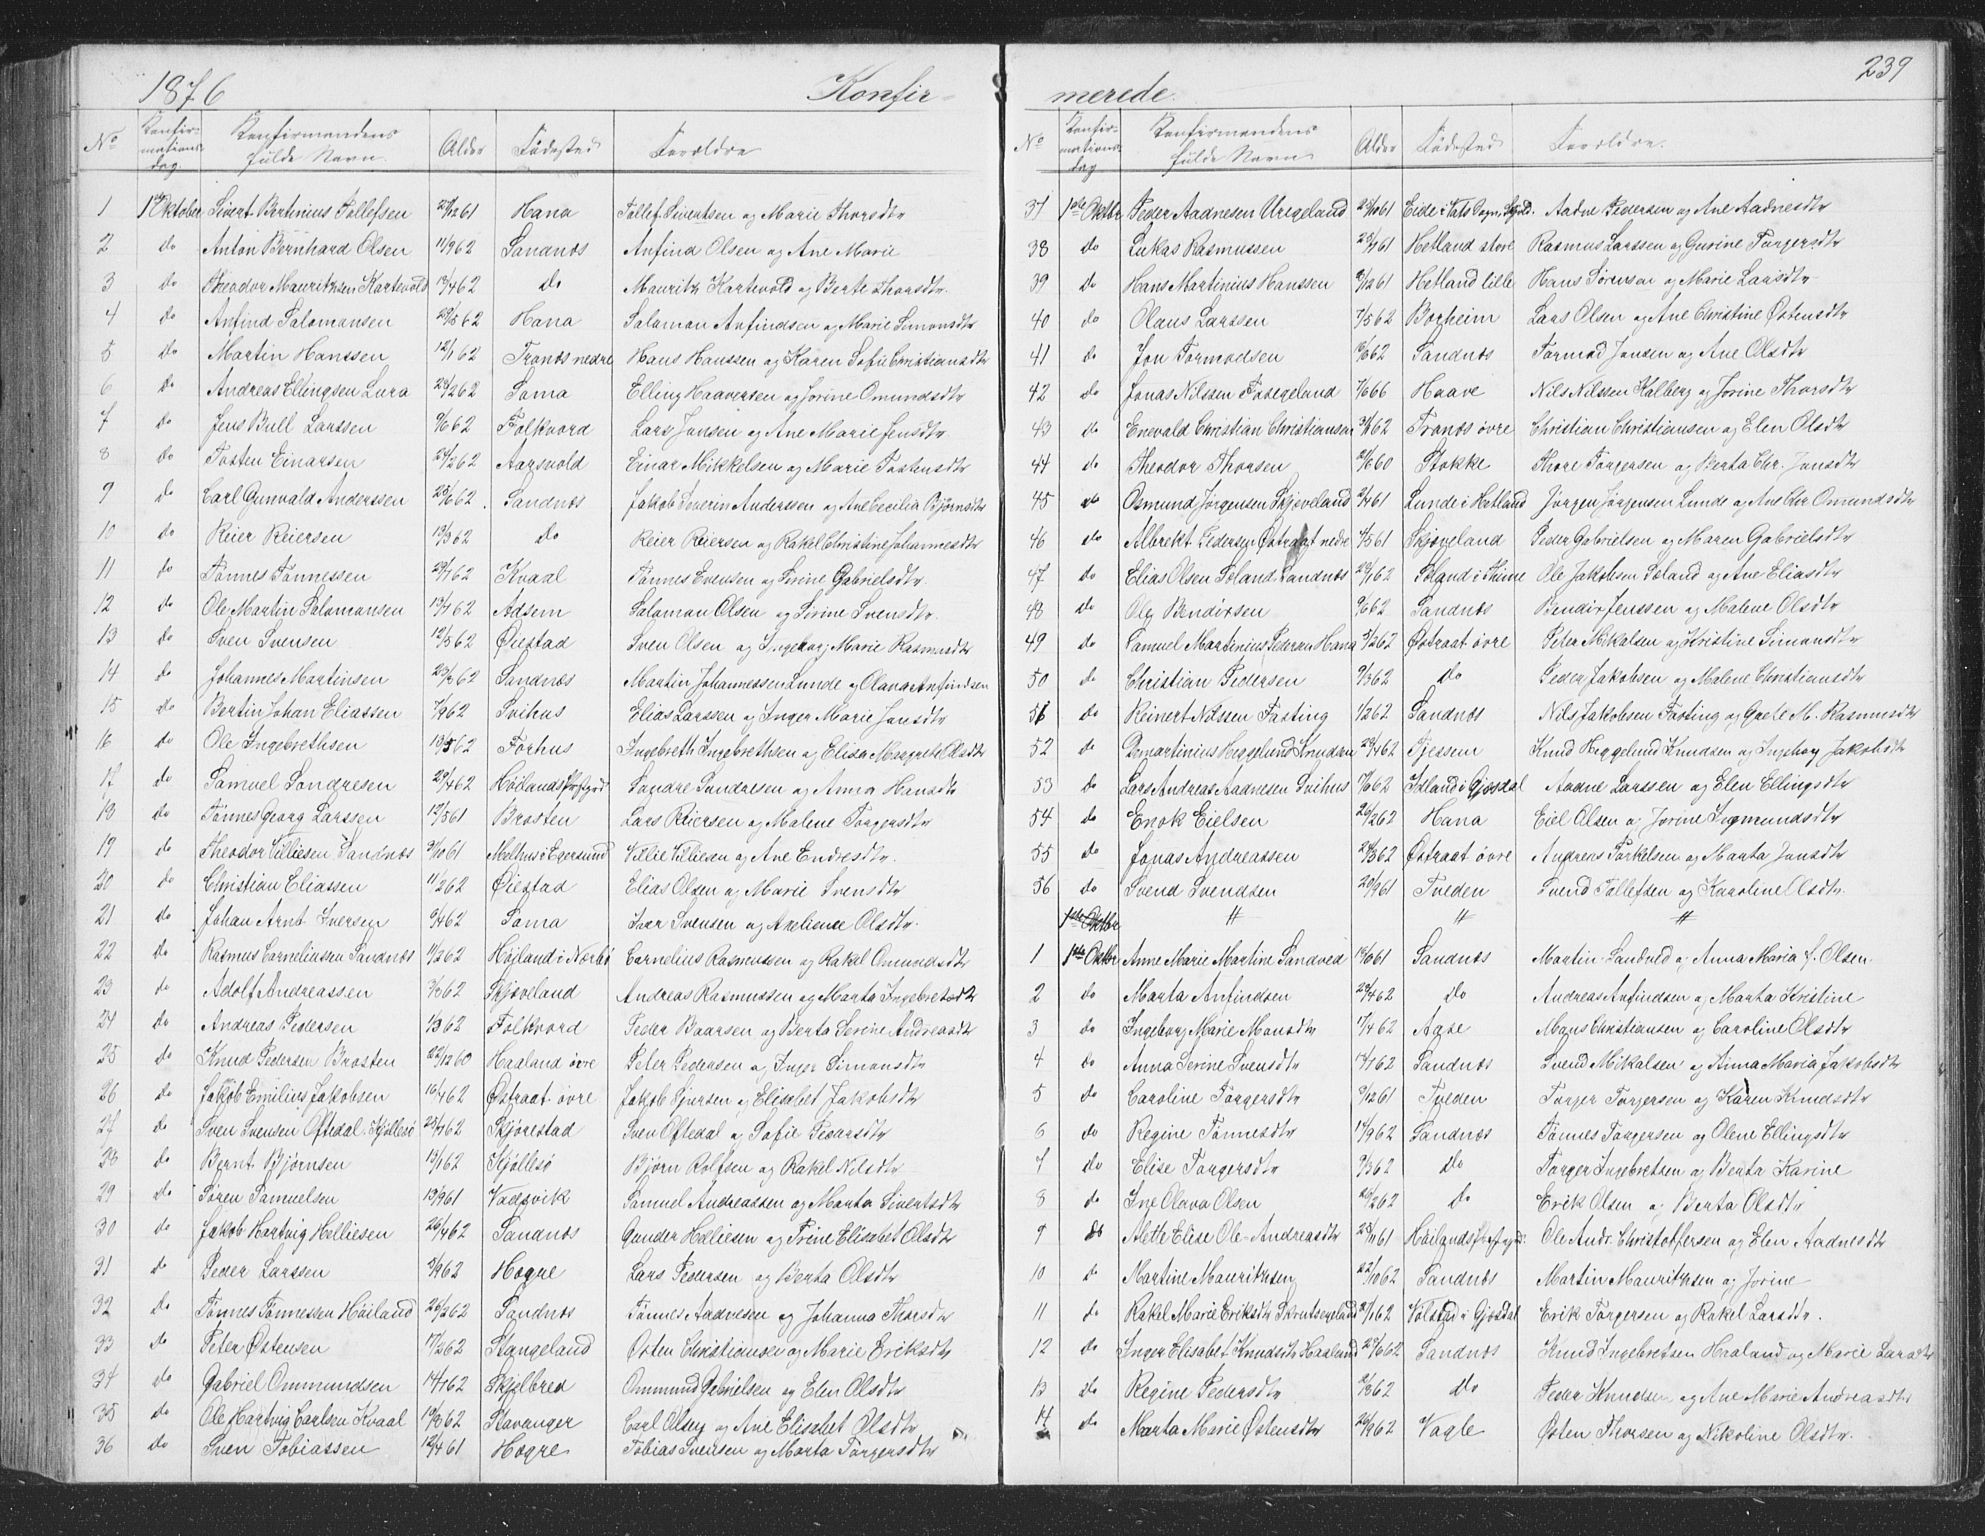 1876 Konfir-
No Konfirmationsdag Konfirmandens fulde Navn Alder Fødested Forældre
1 1ste Oktober Sivert Bertinius Tollefsen 61 Hana Tollef Sivertsen og Marie Thorsdtr
2 do Anton Bernhard Olsen 11/9 62 Sandnæs Anfind Olsen og Ane Marie
3 do Theodor Mauritzsen Kartevold 19/4 62 do Mauritz Kartevold og Berte Thorsdtr
4 do Anfind Salamonsen 29/5 62 Hana Salamon Anfindsen og Marie Simonsdtr
5 do Martin Hanssen 12/1 62 Tronæs nedre Hans Hanssen og Karen Sofie Christiansdtr
6 do Andreas Ellingsen Lura 24/2 62 Soma Elling Haaversen og Jorine Omundsdtr
7 do Jens Bull Larssen 62 Folkvord Lars Jonsen og Ane Marie Jensdtr
8 do Tosten Einarsen 24/2 62 Aarsvold Einar Mikkelsen og Marie Tostensdtr
9 do Carl Gunvald Anderssen 25/6 62 Sandnæs Jakob Severin Anderssen og Ane Cecilia Bjørnsdtr
10 do Reier Reiersen 19/3 62 do Reier Reiersen og Rakel Christine Johannesdtr
11 do Tønnes Tønnessen 29/1 62 Kvaal Tønnes Evensen og Serine Gabrielsdtr
12 do Ole Martin Salamonsen 19/1 62 Adsem Salamon Olsen og Serine Svensdtr
13 do Sven Svensen 12/5 62 Øiestad Sven Olsen og Ingeborg Marie Rasmusdtr
14 do Johannes Martinsen 62 Sandnæs Martin Johannessen Lunde og Olana Anfindsen
15 do Bertin Johan Eliassen 7/9 62 Svihus Elias Larssen og Inger Marie Jonsdtr
16 do Ole Ingebrethsen 19/5 62 Forhus Ingebreth Ingebrethsen og Elisa Margrete Olsdtr
17 do Samuel Sondresen 29/4 62 Høilands Præstgrd Sondre Sondresen og Anna Hansdtr
18 do Tønnes Georg Larssen 12/5 61 Brosten Lars Reiersen og Malene Torgersdtr
19 do Theodor Villiesen Sandnæs 9/10 61 Melhus i Egersund Villie Villiesen og Ane Endresdtr
20 do Christian Eliassen 11/2 62 Øiestad Elias Olsen og Marie Svensdtr
21 do Johan Arnt Iversen 9/4 62 Soma Iver Svensen og Axeliane Olsdtr
22 do Rasmus Corneliusen Sandnæs 11/2 62 Høiland i Nærbø Cornelius Rasmussen og Rakel Omundsdtr
23 do Adolf Andreassen 62 Skjæveland Andreas Rasmussen og Marta Ingebretsdtr
24 do Andreas Pedersen 1/3 62 Folkvord Peder Baarsen og Berta Serine Andreasdtr
25 do Knud Pedersen Brosten 22/12 60 Haaland øvre Peter Pedersen og Inger Simonsdtr
26 do Jakob Emilius Jakobsen 10/4 62 Østraat øvre Jakob Sjursen og Elisabet Jakobsdtr
27 do Sven Svensen Oftedal Kjøllesø 62 Skjørestad Sven Oftedal og Sofie Pedersdtr
28 do Bernt Bjørnsen 13/1 62 Kjøllesø Bjørn Rolfsen og Rakel Nilsdtr
29 do Søren Samuelsen 13/9 61 Vadsvik Samuel Andreassen og Marta Sivertsdtr
30 do Jakob Hartvig Helliesen 26/4 62 Sandnæs Gunder Helliesen og Trine Elisabet Olsdtr
31 do Peder Larssen 62 Hogre Lars Pedersen og Berta Olsdtr
32 do Tønnes Tønnessen Høiland 26/2 62 Sandnæs Tønnes Aadnesen og Johanna Thorsdtr
33 do Peter Østensen 17/2 62 Stangeland Østen Christiansen og Marie Eriksdtr
34 do Gabriel Ommundsen 14/1 62 Skjelbred Ommund Gabrielsen og Elen Olsdtr
35 do Ole Hartvig Carlsen Kvaal 19/3 62 Stavanger Carl Olsen og Ane Elisabet Olsdtr
36 do Sven Tobiassen 12/4 61 Hogre Tobias Svensen og Marta Torgersdtr
merede 239
No Konfirmationsdag Konfirmandens fulde Navn Alder Fødested Forældre
37 1ste Oktbr Peder Aadnesen Uregeland 61 Eide i Tats Sogn, Aadne Pedersen og Ane Aadnesdtr
38 do Lukas Rasmussen 61 Hetland store Rasmus Larssen og Gurine Torgersdtr
39 do Hans Martinius Hanssen 61 Hetland lille Hans Sørensen og Marie Larsdtr
40 do Olaus Larssen 7/5 62 Borheim Lars Olsen og Ane Christine Østensdtr
41 do Jon Tormodsen 62 Sandnæs Tormod Jonsen og Ane Olsdtr
42 do Jonas Nilssen Fosegeland Haave Nils Nilssen Kalberg og Jorine Thorsdtr
43 do Enevald Christian Christiansen 62 Tronæs øvre Christian Christiansen og Elen Olsdtr
44 do Theodor Thorsen 60 Stokke Thore Torgersen og Berta Chr. Jonsdtr
45 do Osmund Jørgensen Skjæveland 61 Lunde i Hetland Jørgen Jørgensen Lunde og Ane Chr Omundsdtr
46 do Albrekt Pedersen Østraat nedre 61 Skjæveland Peder Gabrielsen og Maren Gabrielsdtr
47 do Elias Olsen Søland Sandnæs 62 Søland i Thime Ole Jakobsen Søland og Ane Eliasdtr
48 do Ole Bendixsen 62 Sandnæs Bendix Jenssen og Malene Olsdtr
49 do Samuel Martinius Pedersen Hana 62 Østraat øvre Peter Mikalsen og Kristine Simonsdtr
50 do Christian Pedersen 9/3 62 do Peder Jakobsen og Malene Christiansdtr
51 do Reinert Nilssen Fasting 1/2 62 Sandnæs Nils Jakobsen Fasting og Grete M. Rasmusdtr
52 do Heggelund Knudsen 29/4 62 Tjessem Knud Heggelund Knudsen og Ingeborg Jakobsdtr
53 do Lars Andreas Aadnesen Svihus 62 i Gjesdal Aadne Larssen og Elen Ellingsdtr
54 do Enok Eielsen 26/2 62 Hana Eiel Olsen og Jorine Sigmundsdtr
55 do Jonas Andreassen 62 Østraat øvre Andreas Torkelsen og Marta Jonsdtr
56 do Svend Svendsen 20/9 61 Tveden Svend Tollefsen og Karoline Olsdtr
1ste Oktbr " " "
1 1ste Oktbr Anne Marie Martine Sandved 61 Sandnæs Martin Sandved og Anna Maria f. Olsen
2 do Marta Anfindsen 29/4 62 do Andreas Anfindsen og Marta Kristine
3 do Ingeborg Marie Monsdtr 62 Aase Mons Christiansen og Caroline Olsdtr
4 do Anna Serine Svensdtr 62 Sandnæs Svend Mikalsen og Anna Maria Jakobsdtr
5 do Caroline Torgersdtr 61 Tveden Torger Torgersen og Karen Knudsdtr
6 do Regine Tønnesdtr 62 Sandnæs Tønnes Torgersen og Olene Ellingsdtr
7 do Elise Torgersdtr 9/3 62 do Torger Ingebretsen og Berta Karine
8 do Ine Olava Olsen 62 do Erik Olsen og Berta Olsdtr
9 do Alette Elise Ole-Andreasdtr 61 Høilands Prestegrd. Ole Andr. Christoffersen og Elen Aadnesdtr
10 do Martine Mauritzsen 22/10 62 Sandnæs Martin Mauritzsen og Jorine
11 do Rakel Marie Eriksdtr 62 Volstad i Gjesdal Erik Torgersen og Rakel Larsdtr.
12 do Inger Elisabet Knudsdtr Haaland 62 Sandnæs Knud Ingebretsen Haaland og Marie Larsdtr
13 do Regine Pedersdtr 62 do Peder Knudsen og Ane Marie Andreasdtr
14 do Marta Marie Østensdtr 62 Vagle Østen Thorsen og Nikoline Olsdtr.